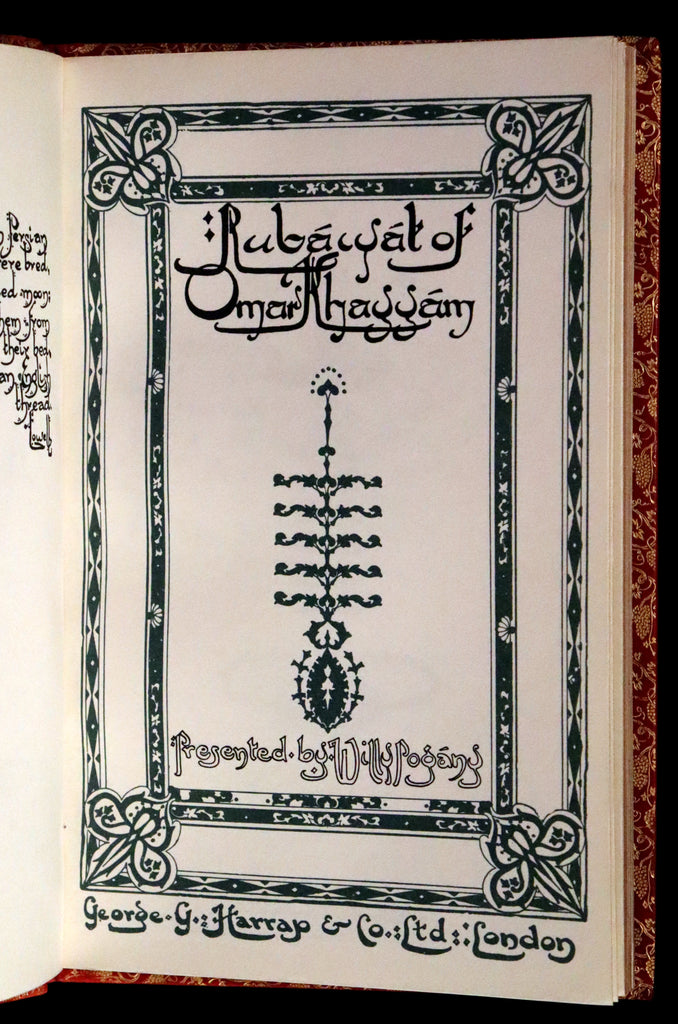 Persian
ere bred,
ed moon;
hem from
their bea
an English
thread.
Lowell
Rubáiyát of
Omar Khayyám
Presented by Willy Pogány
George G. Harrap & Co. Ltd: London